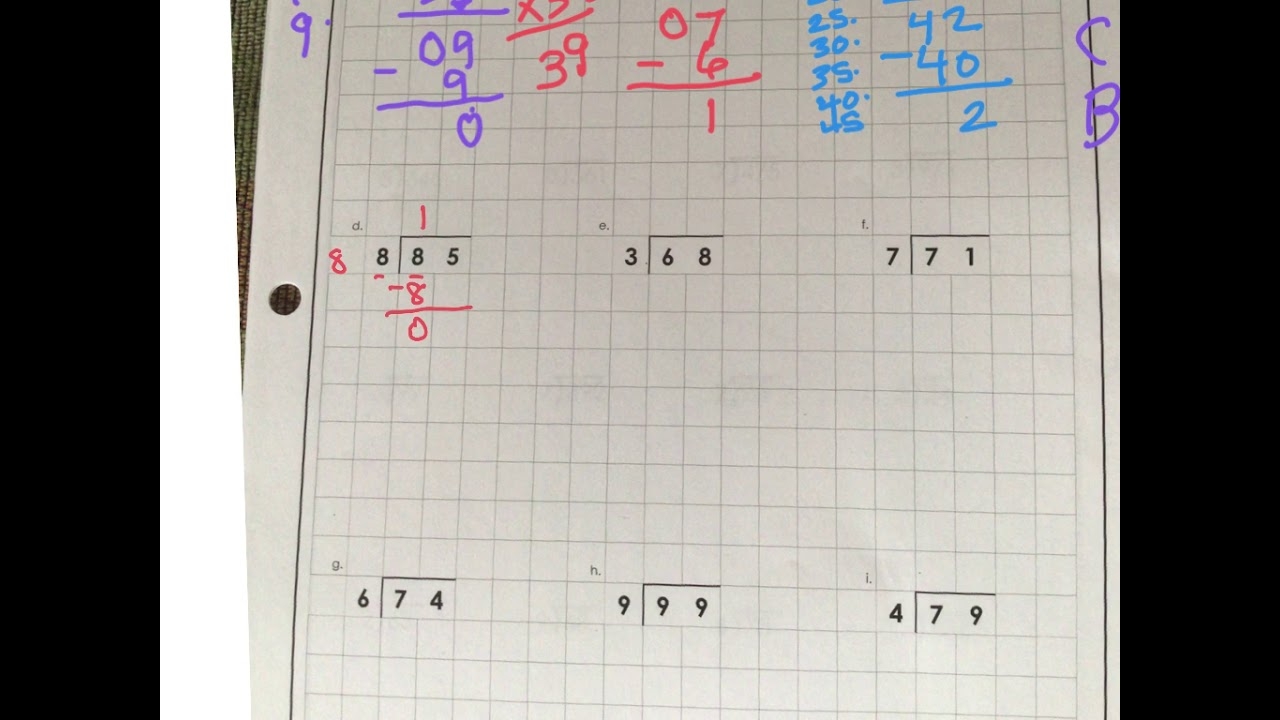 25.
42
9.
x3
07
30.
C
09
39
- 6
35.
-40
- 9
40.
0
1
45
2
B
1
d.
e.
f.
8
8 8 5
3 6 8
7 7 1
-8
0
g.
h.
i.
6 7 4
9 9 9
4 7 9